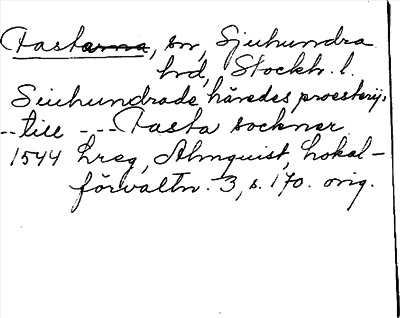 Fastarna, sn, Sjuhundra
hd, Stockh. l.
Siuhundrade häredes proesterij.
-- till --- Fasta sockner
1544 Lreg, Almquist, Lokal-
förvaltn. 3, s. 170. orig.